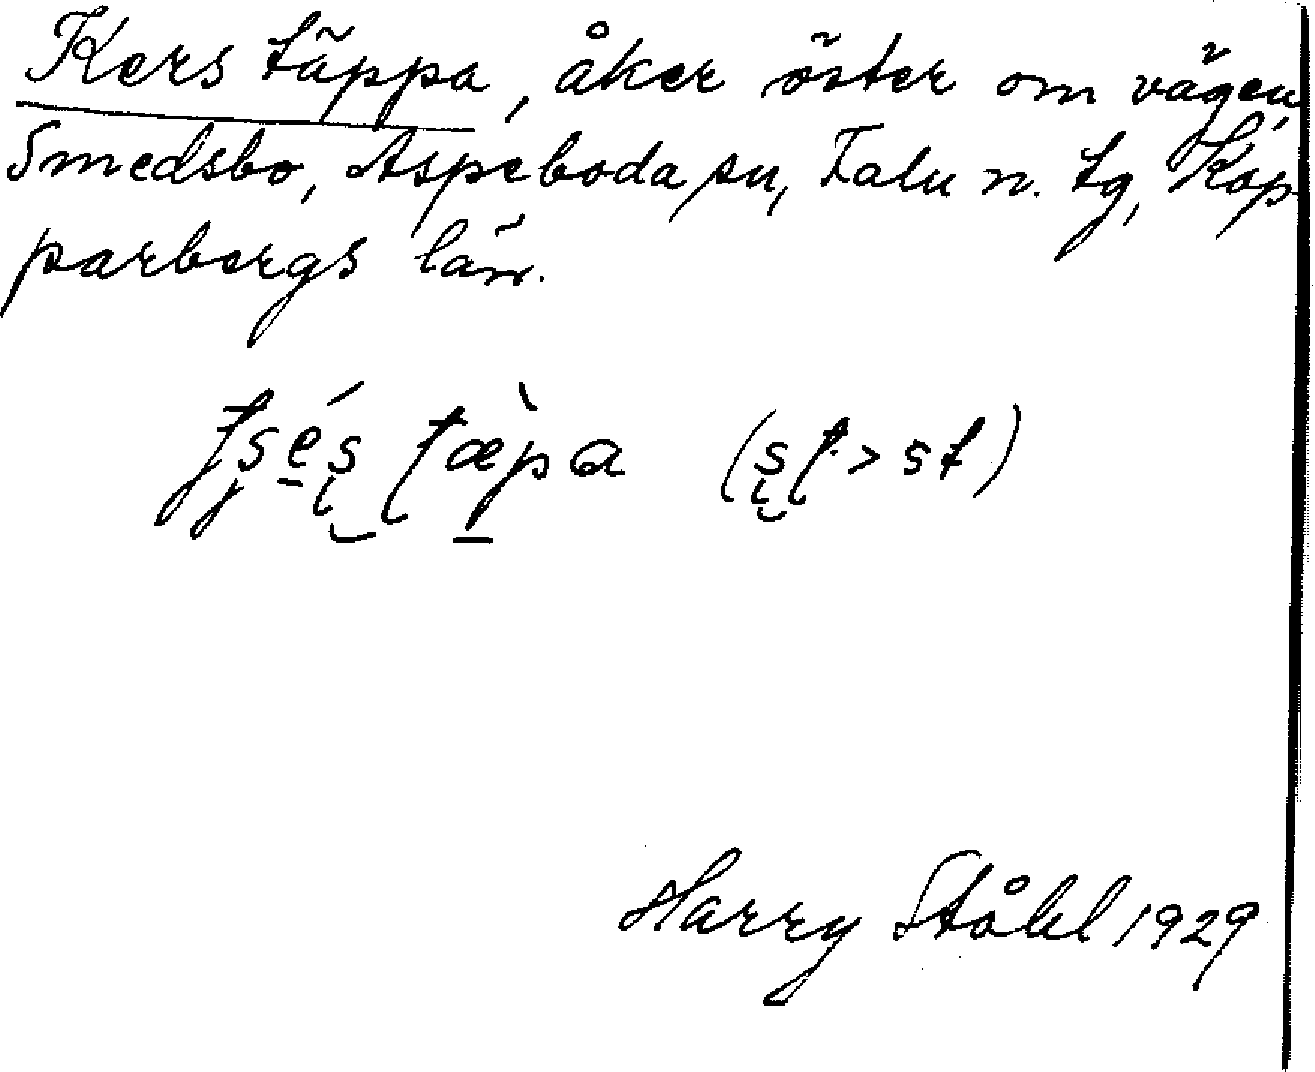 Kers täppa, åker öster om vägen,
Smedsbo, Aspeboda sn, Falu n. tg, Kop-
parbergs län.
(s̨t > st)
Harry Ståhl 1929